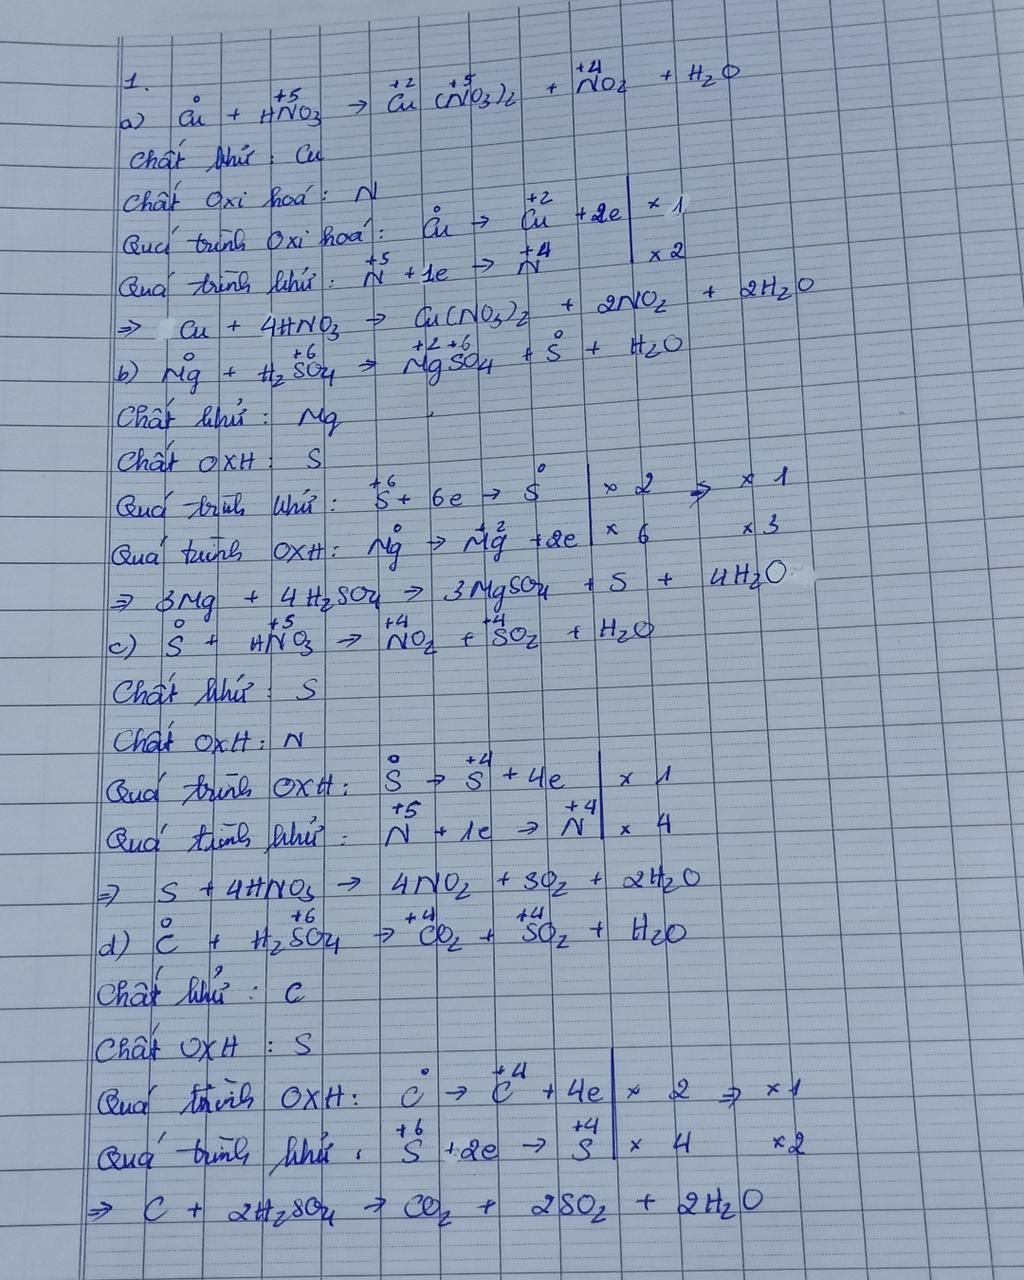 1.
a) Cu⁰ + HN⁺⁵O₃ → Cu⁺² (N⁺⁵O₃)₂ + N⁺⁴O₂ + H₂O
Chất khử : Cu
Chất oxi hoá : N
Quá trình oxi hoá : Cu⁰ → Cu⁺² + 2e | × 1
Quá trình khử : N⁺⁵ + 1e → N⁺⁴ | × 2
⇒ Cu + 4HNO₃ → Cu(NO₃)₂ + 2NO₂ + 2H₂O
b) Mg⁰ + H₂S⁺⁶O₄ → Mg⁺²S⁺⁶O₄ + S⁰ + H₂O
Chất khử : Mg
Chất OXH : S
Quá trình khử : S⁺⁶ + 6e → S⁰ | × 2 ⇒ × 1
Quá trình OXH : Mg⁰ → Mg⁺² + 2e | × 6 × 3
⇒ 3Mg + 4H₂SO₄ → 3MgSO₄ + S + 4H₂O
c) S⁰ + HN⁺⁵O₃ → N⁺⁴O₂ + S⁺⁴O₂ + H₂O
Chất khử : S
Chất OXH : N
Quá trình OXH : S⁰ → S⁺⁴ + 4e | × 1
Quá trình khử : N⁺⁵ + 1e → N⁺⁴ | × 4
⇒ S + 4HNO₃ → 4NO₂ + SO₂ + 2H₂O
d) C⁰ + H₂S⁺⁶O₄ → C⁺⁴O₂ + S⁺⁴O₂ + H₂O
Chất khử : C
Chất OXH : S
Quá trình OXH : C⁰ → C⁺⁴ + 4e | × 2 ⇒ × 1
Quá trình khử : S⁺⁶ + 2e → S⁺⁴ | × 4 × 2
⇒ C + 2H₂SO₄ → CO₂ + 2SO₂ + 2H₂O